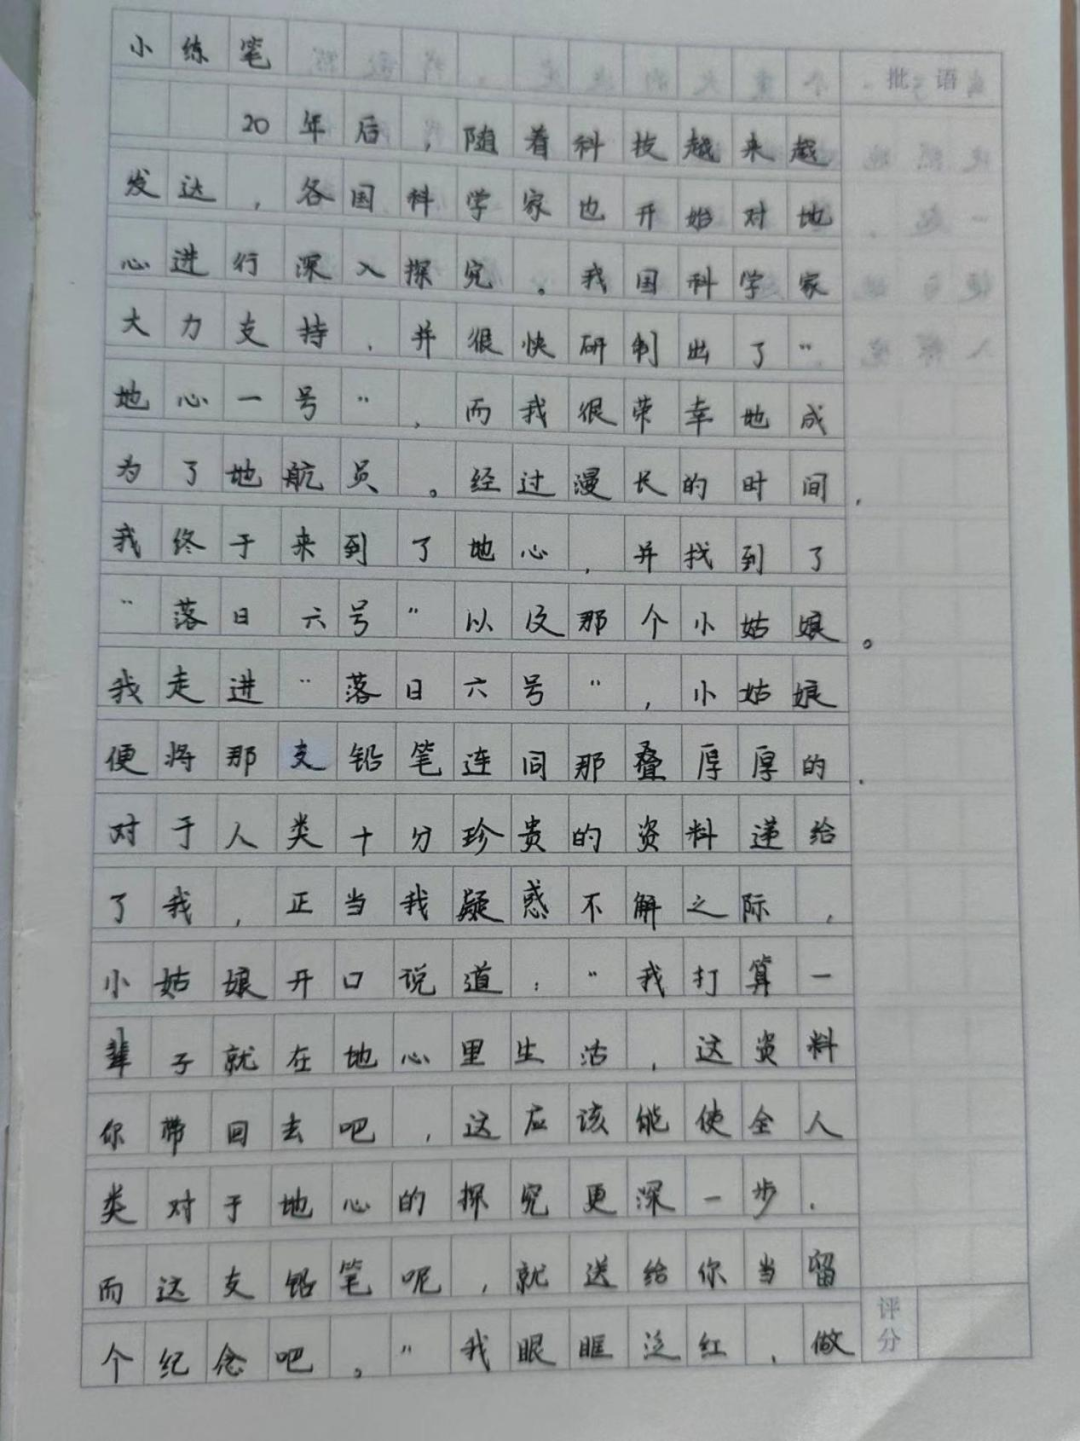 小练笔
批语
20年后，随着科技越来越
发达，各国科学家也开始对地
心进行深入探究。我国科学家
大力支持，并很快研制出了“
地心一号”，而我很荣幸地成
为了地航员。经过漫长的时间，
我终于来到了地心，并找到了
“落日六号”以及那个小姑娘。
我走进“落日六号”，小姑娘
便将那支铅笔连同那叠厚厚的、
对于人类十分珍贵的资料递给
了我，正当我疑惑不解之际，
小姑娘开口说道：“我打算一
辈子就在地心里生活，这资料
你带回去吧，这应该能使全人
类对于地心的探究更深一步.
而这支铅笔呢，就送给你当留
个纪念吧。”我眼眶泛红，做
评分